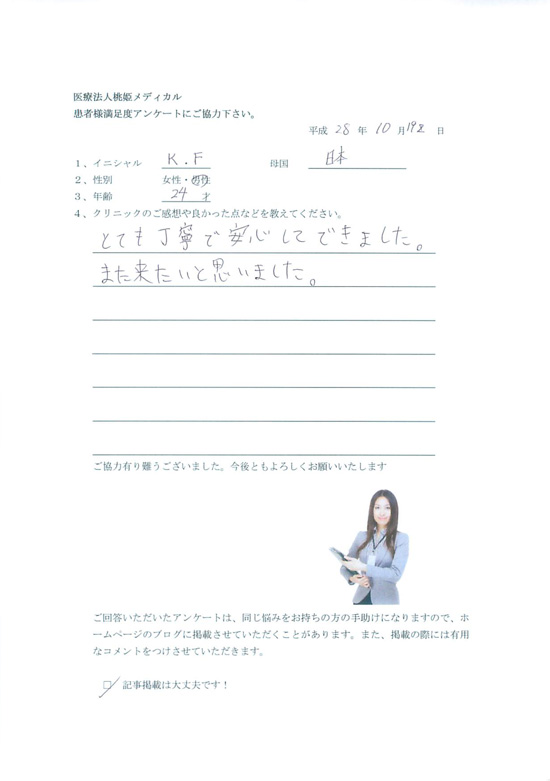 医療法人桃姫メディカル
患者様満足度アンケートにご協力下さい。
平成 28 年 10 月 19 日
1、イニシャル K.F 母国 日本
2、性別 女性・男性
3、年齢 24 才
4、クリニックのご感想や良かった点などを教えてください。
とても丁寧で安心してできました。
また来たいと思いました。
ご協力有り難うございました。今後ともよろしくお願いいたします
ご回答いただいたアンケートは、同じ悩みをお持ちの方の手助けになりますので、ホ
ームページのブログに掲載させていただくことがあります。また、掲載の際には有用
なコメントをつけさせていただきます。
□ 記事掲載は大丈夫です！